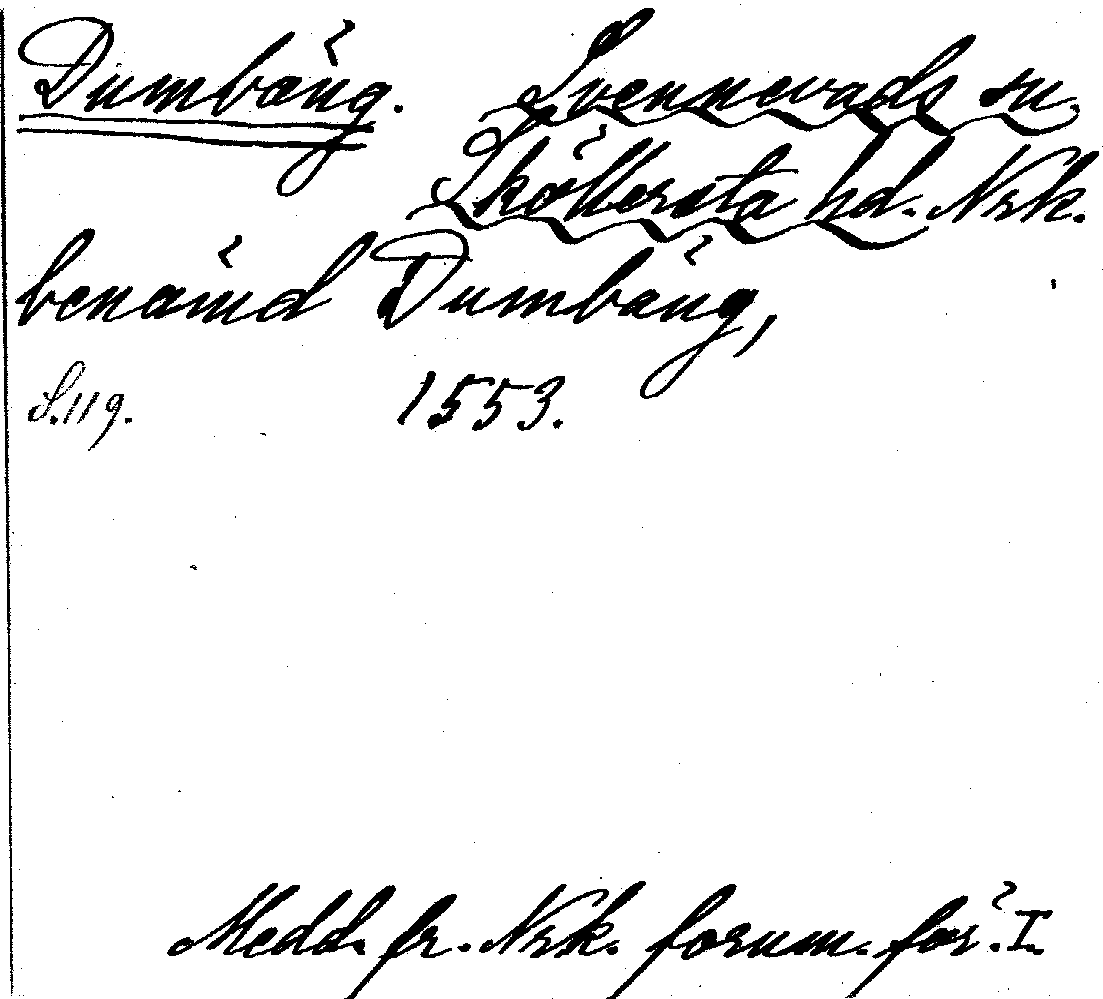 Dumbäng. Svennevads sn.
Sköllersta hd. Nrk.
benämd Dumbäng,
S. 119. 1553.
Medd. fr. Nrk. fornm. för. I.